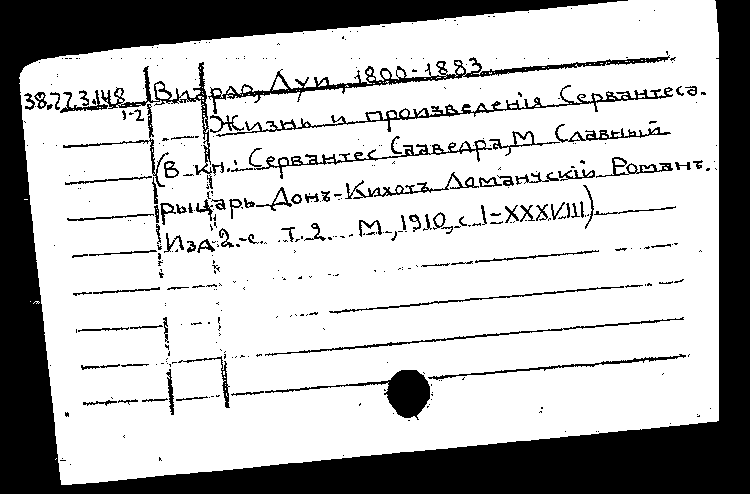 38.22.3.148 Виардо, Луи, 1800-1883
1-2 Жизнь и произведенiя Сервантеса.
(В кн.: Сервантес Сааведра, М. Славный
рыцарь Донъ-Кихотъ Ламанчскiй. Романъ.
Изд. 2-е. Т. 2. М., 1910, с. I-XXXVIII).